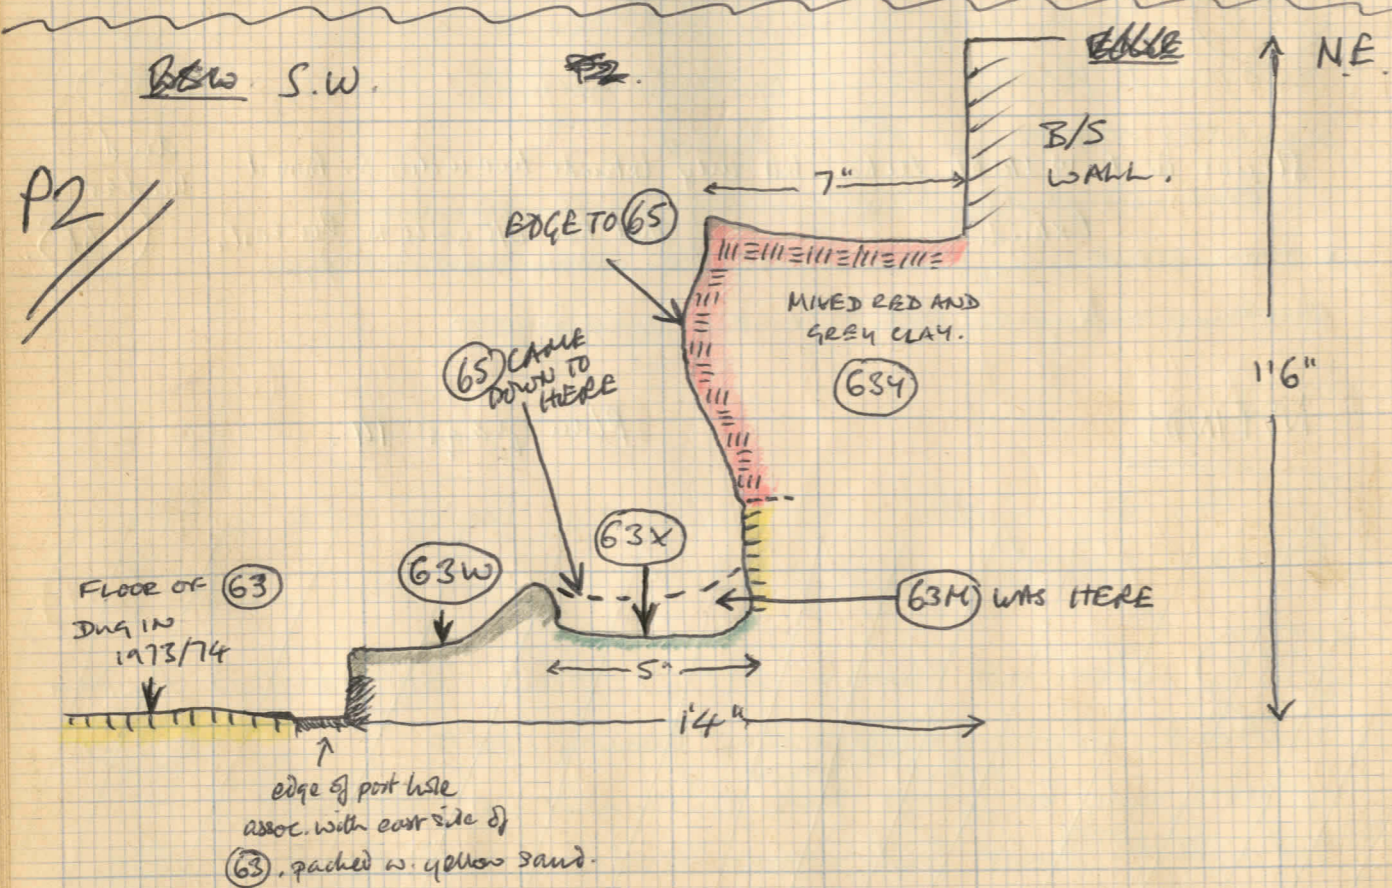 S.W.
N.E.
P2
B/S
WALL.
7"
EDGE TO 65
MIXED RED AND
GREY CLAY.
63Y
1'6"
65 CAME
DOWN TO
HERE
63X
63W
FLOOR OF 63
DUG IN
1973/74
63M WAS HERE
5"
1'4"
edge of post hole
assoc. with east side of
63. packed w. yellow sand.